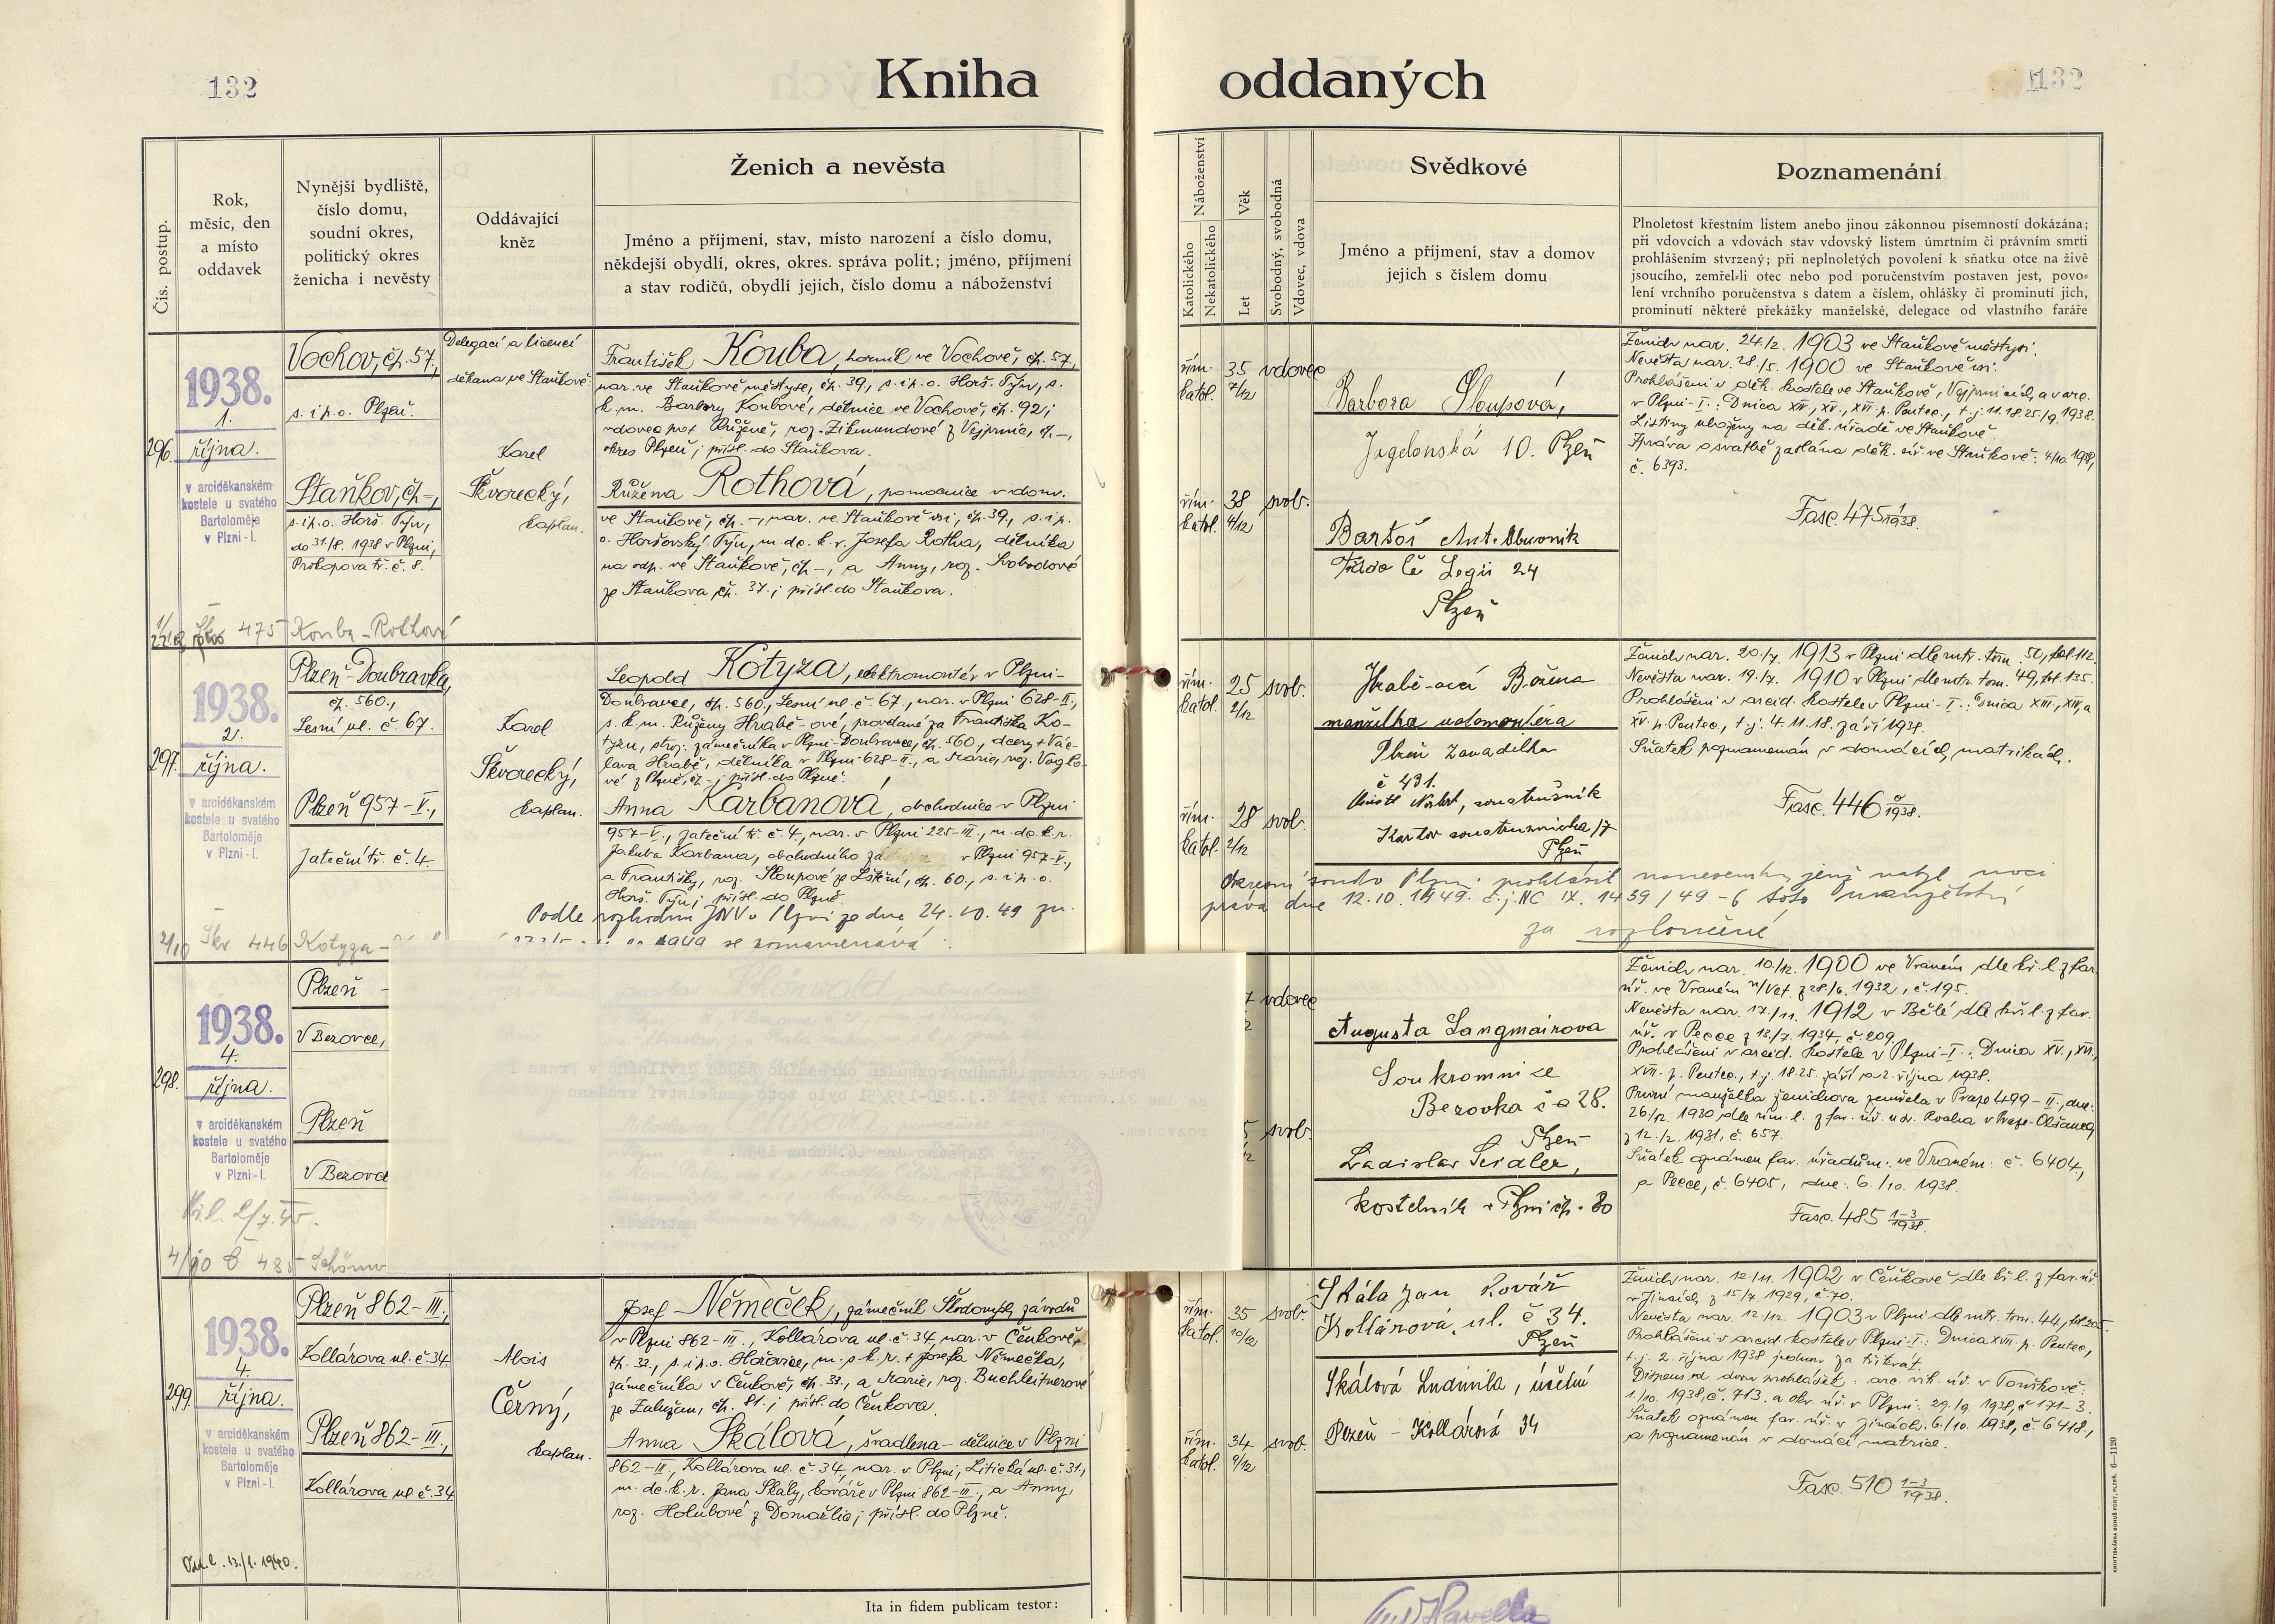 132
Kniha oddaných
132
Čís. postup.
Rok, měsíc, den a místo oddavek
Nynější bydliště, číslo domu, soudní okres, politický okres ženicha i nevěsty
Oddávající kněz
Ženich a nevěsta
Jméno a příjmení, stav, místo narození a číslo domu,
někdejší obydlí, okres, okres. správa polit.; jméno, příjmení
a stav rodičů, obydlí jejich, číslo domu a náboženství
Náboženství
Katolického
Nekatolického
Věk
Let
Svobodný, svobodná
Vdovec, vdova
Svědkové
Jméno a příjmení, stav a domov
jejich s číslem domu
Poznamenání
Plnoletost křestním listem anebo jinou zákonnou písemností dokázána;
při vdovcích a vdovách stav vdovský listem úmrtním či právním smrti
prohlášením stvrzený; při neplnoletých povolení k sňatku otce na živě
jsoucího, zemřel-li otec nebo pod poručenstvím postaven jest, povo-
lení vrchního poručenstva s datem a číslem, ohlášky či prominutí jich,
prominutí některé překážky manželské, delegace od vlastního faráře
296.
1938.
1.
října.
v arciděkanském
kostele u svatého
Bartoloměje
v Plzni-I.
Vochov, čp. 57.,
s. i p. o. Plzeň.
Staňkov, čp -,
s. i p. o. Horš. Týn,
do 31/8. 1938 v Plzni,
Prokopova tř. č. 8.
Delegací a licencí
děkana ve Staňkově:
Karel
Škvorecký,
kaplan.
František Kouba, horník ve Vochově, čp. 57.,
nar. ve Staňkově městyse, čp. 39., s. i p. o. Horš. Týn, s.
k. m. Barbory Koubové, dělnice ve Vochově, čp. 92;
vdovec po † Růženě, roz. Zikmundové z Vejprnic, čp. -,
okres Plzeň; přísl. do Staňkova.
Růžena Rothová, pomocnice v dom.
ve Staňkově, čp. -, nar. ve Staňkově vsi, čp. 39., s. i p.
o. Horšovský Týn, m. dc. k. r. Josefa Rotha, dělníka
na odp. ve Staňkově, čp -, a Anny, roz. Svobodové
ze Staňkova, čp. 37.; přísl. do Staňkova.
řím. katol.
35 7/12
vdovec
řím. katol.
38 4/12
svob.
Barbora Sloupová,
Jagelonská 10. Plzeň
Bartoš Ant. Obuvník
Třída Čs Legií 24
Plzeň
Ženich nar. 24/2. 1903 ve Staňkově městysi.
Nevěsta nar. 28/5. 1900 ve Staňkově vsi.
Prohlášeni v děk. kostele ve Staňkově, Vejprnicích, a v arc.
v Plzni-I.: Dnica XIV., XV., XVI. p. Pentec., t. j. 11. 18. 25/9. 1938.
Listiny uloženy na děk. úřadě ve Staňkově.
Zpráva o svatbě zaslána děk. úř. ve Staňkově: 4/10. 1938,
č. 6393.
Fasc. 475 1/1938.
475 Kouba-Rothová
297.
1938.
2.
října.
v arciděkanském
kostele u svatého
Bartoloměje
v Plzni-I.
Plzeň-Doubravka,
čp. 560.,
Lesní ul. č. 67.
Plzeň 957-V.,
Jateční tř. č. 4.
Karel
Škvorecký,
kaplan.
Leopold Kotyza, elektromontér v Plzni-
Doubravce, čp. 560., Lesní ul. č. 67., nar. v Plzni 628-II.,
s. k. m. Růženy Hrabě-ové, provdané za Františka Ko-
tyzu, stroj. zámečníka v Plzni-Doubravce, čp. 560., dcery † Vác-
lava Hrabě, dělníka v Plzni 628-II., a Marie, roz. Voglo-
vé z Plzně, čp -; přísl. do Plzně.
Anna Karbanová, obchodnice v Plzni
957-V., Jateční tř. č. 4., nar. v Plzni 225-III., m. dc. k. r.
Jakuba Karbana, obchodního zá v Plzni 957-V.,
a Františky, roz. Sloupové ze Štětiní, čp. 60., s. i p. o.
Horš. Týn; přísl. do Plzně.
Podle rozhodnu JNV v Plzni ze dne 24.10.49 zn.
se poznamenává:
řím. katol.
25 2/12
svob.
řím. katol.
28 2/12
svob.
Hrabě-ová Božena
manželka
Plzeň Zavadilka
č 431.
Plzeň
Ženich nar. 20/7. 1913 v Plzni dle mtr. tom. 50, fol. 112.
Nevěsta nar. 19/7. 1910 v Plzni dle mtr. tom. 49, fol. 135.
Prohlášeni v arcid. kostele v Plzni-I.: Dnica XIII., XIV., a
XV. p. Pentec., t. j. 4. 11. 18. září 1938.
Sňatek poznamenán v domácích matrikách.
Fasc. 446 /1938.
Okresní soud v Plzni prohlásil usnesením, jenž nabyl moci
práva dne 12.10.1949. č.j. NC IX. 1439/49-6 toto manželství
za rozloučené
2/10 Škv 446 Kotyza-
298.
1938.
4.
října.
v arciděkanském
kostele u svatého
Bartoloměje
v Plzni-I.
Plzeň -
V Bezovce,
Plzeň
V Bezovce
4/10 485 Schönw
vdovec
svob.
Augusta Langmairova
Soukromnice
Bezovka č 28.
Plzeň
Ladislav Seidler,
kostelník v Plzni čp. 80
Ženich nar. 10/12. 1900 ve Vraném dle kř. l. z far.
úř. ve Vraném n/Vlt. z 28/6. 1932, č. 195.
Nevěsta nar. 17/11. 1912 v Bělé, dle kř. l. z far.
úř. v Pecce z 13/7. 1934, č. 209.
Prohlášeni v arcid. kostele v Plzni-I.: Dnica XV., XVI.,
XVII. p. Pentec., t. j. 18. 25. září a 2. října 1938.
První manželka ženichova zemřela v Praze 499-II., dne:
26/12. 1930, dle úm. l. z far. úř. u sv. Rocha v Praze-Olšanech
z 12/2. 1931, č. 657.
Sňatek oznámen far. úřadům: ve Vraném: č. 6404.,
a Pecce, č. 6405, dne: 6./10. 1938.
Fasc. 485 1-3/1938.
299.
1938.
4.
října.
v arciděkanském
kostele u svatého
Bartoloměje
v Plzni-I.
Plzeň 862-III.,
Kollárova ul. č. 34.
Plzeň 862-III.,
Kollárova ul č. 34.
Alois
Černý,
kaplan.
Josef Němeček, zámečník Škodových závodů
v Plzni 862-III., Kollárova ul. č. 34, nar. v Čenkově,
čp. 33., s. i p. o. Hořovice, m. s. k. r. † Josefa Němečka,
zámečníka v Čenkově, čp. 33., a Marie, roz. Buchleitnerové
ze Zalužan, čp. 81.; přísl. do Čenkova.
Anna Skálová, švadlena-dělnice v Plzni
862-III., Kollárova ul. č. 34, nar. v Plzni, Litická ul. č. 31.,
m. dc. k. r. Jana Skály, kováře v Plzni 862-III., a Anny,
roz. Holubové z Domažlic; přísl. do Plzně.
řím. katol.
35 10/12
svob.
řím. katol.
34 9/12
svob.
Skála Jan Kovář
Kollárová, ul. č 34.
Plzeň
Skálová Ludmila, účetní
Plzeň - Kollárová 34
Ženich nar. 12/11. 1902 v Čenkově dle kř. l. z far. úř.
v Jincích z 15/7. 1929, č. 70.
Nevěsta nar. 12/12. 1903 v Plzni dle mtr. tom. 44, fol. 205.
Prohlášeni v arcid. kostele v Plzni-I.: Dnica XVII. p. Pentec.,
t. j. 2. října 1938 jednou za třikrát.
Dispens od dvou prohlášek: arc. vik. úř. v Touškově:
1./10. 1938, č. 713. a okr. úř. v Plzni: 29./9. 1938, č 171-3.
Sňatek oznámen far. úř. v Jincích: 6./10. 1938, č. 6418.,
a poznamenán v domácí matrice.
Fasc. 510 1-3/1938.
13./1. 1940.
Ita in fidem publicam testor:
KNIHTISKÁRNA BOHUŠ PORT, PLZEŇ. 6-1120